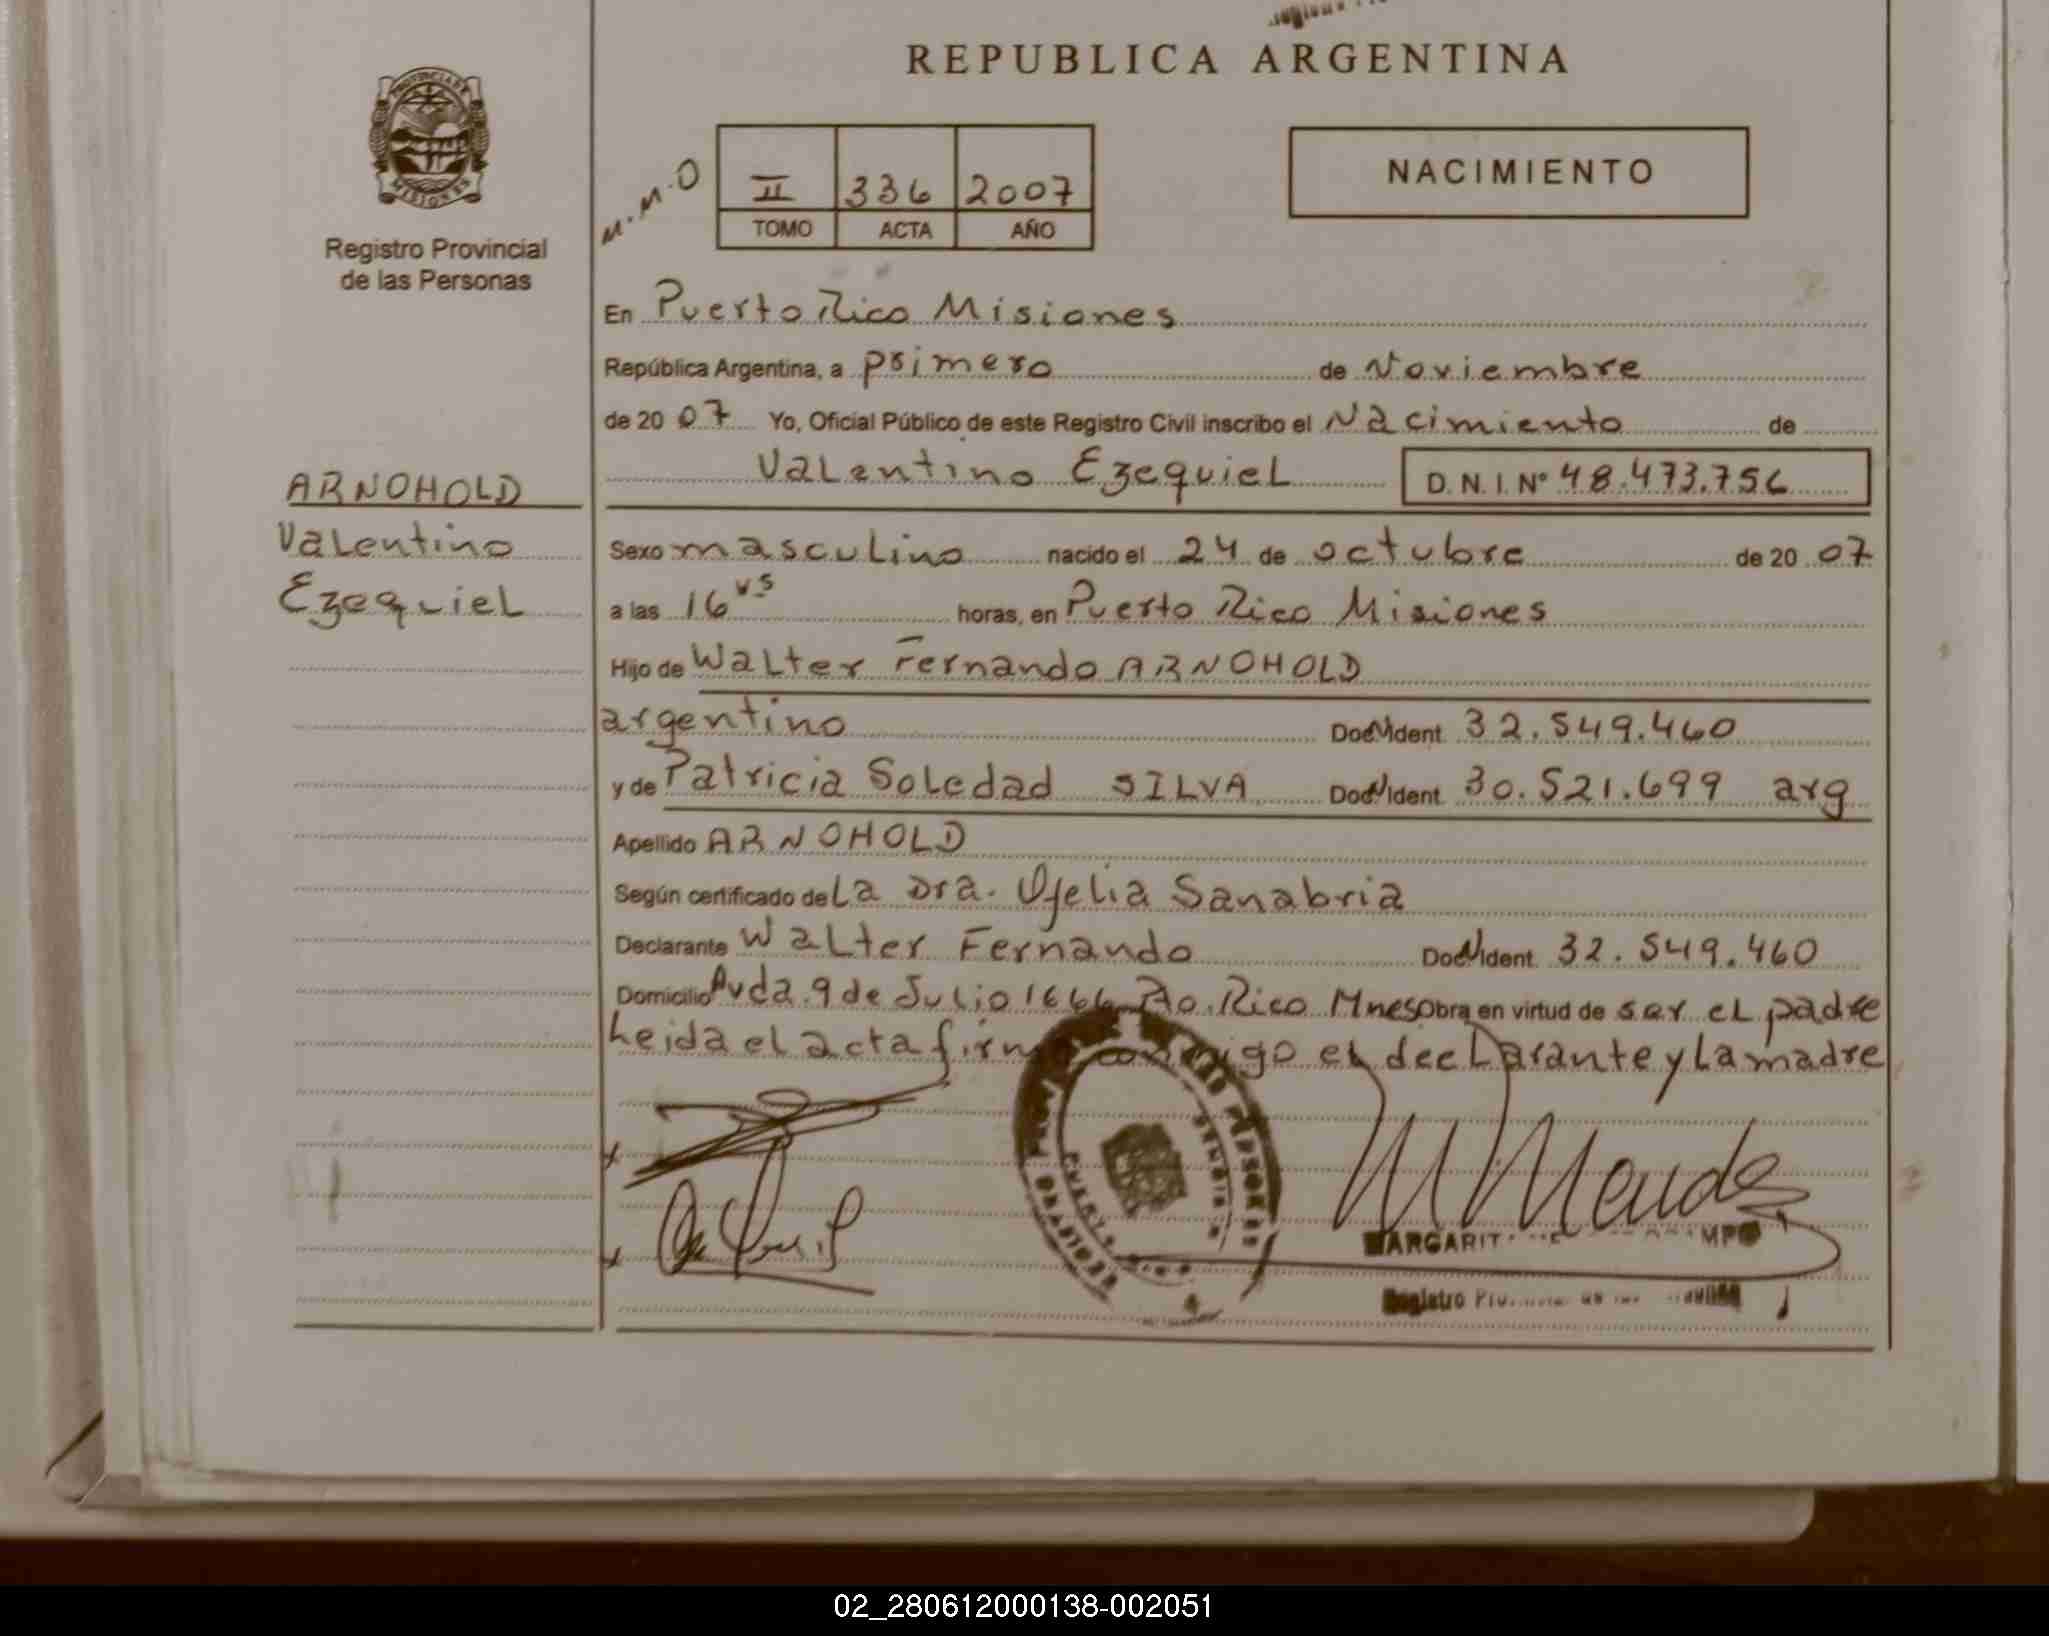 REPUBLICA ARGENTINA
PROVINCIA DE
MISIONES
Registro Provincial
de las Personas
M.M.O
II 336 2007
TOMO ACTA AÑO
NACIMIENTO
En Puerto Rico Misiones
República Argentina, a primero de Noviembre
de 20 07 Yo, Oficial Público de este Registro Civil inscribo el Nacimiento de
Valentino Ezequiel D.N.I. Nº 48.473.756
ARNOHOLD
Valentino
Ezequiel
Sexo masculino nacido el 24 de octubre de 20 07
a las 16 horas, en Puerto Rico Misiones
Hijo de Walter Fernando ARNOHOLD
argentino Doc. Ident. 32.549.460
y de Patricia Soledad SILVA Doc. Ident. 30.521.699 arg
Apellido ARNOHOLD
Según certificado de La Dra. Ofelia Sanabria
Declarante Walter Fernando Doc. Ident. 32.549.460
Domicilio Avda. 9 de Julio 1666 Pto. Rico Mnes Obra en virtud de ser el padre
Leida el acta firma conmigo el declarante y la madre
M Mendez
MARGARIT
Registro
02_280612000138-002051